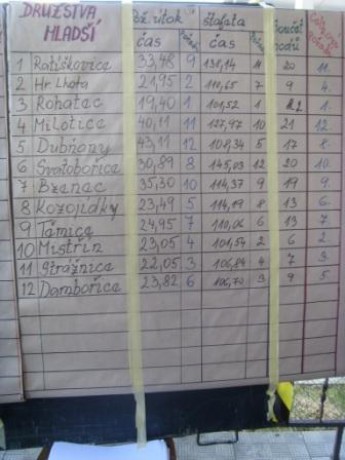 DRUŽSTVA MLADŠÍ
pož. útok štafeta součet bodů celkové
čas čas
1 Ratíškovice 33,48 9 130,14 11 20 11.
2 Hr. Lhota 21,95 2 110,65 7 9 4.
3 Rohatec 19,40 1 101,52 1 2 1.
4 Milotice 40,11 11 127,97 10 21 12.
5 Dubňany 43,11 12 108,34 5 17 8.
6 Svatobořice 30,89 8 145,03 12 20 10.
7 Bzenec 35,30 10 114,37 9 19 9.
8 Kozojídky 23,49 5 114,19 8 13 6.
9 Tvarožná 24,95 7 110,06 6 13 7.
10 Mistřín 23,05 4 101,54 2 6 2.
11 Strážnice 22,05 3 106,84 4 7 3.
12 Dambořice 23,82 6 106,70 3 9 5.